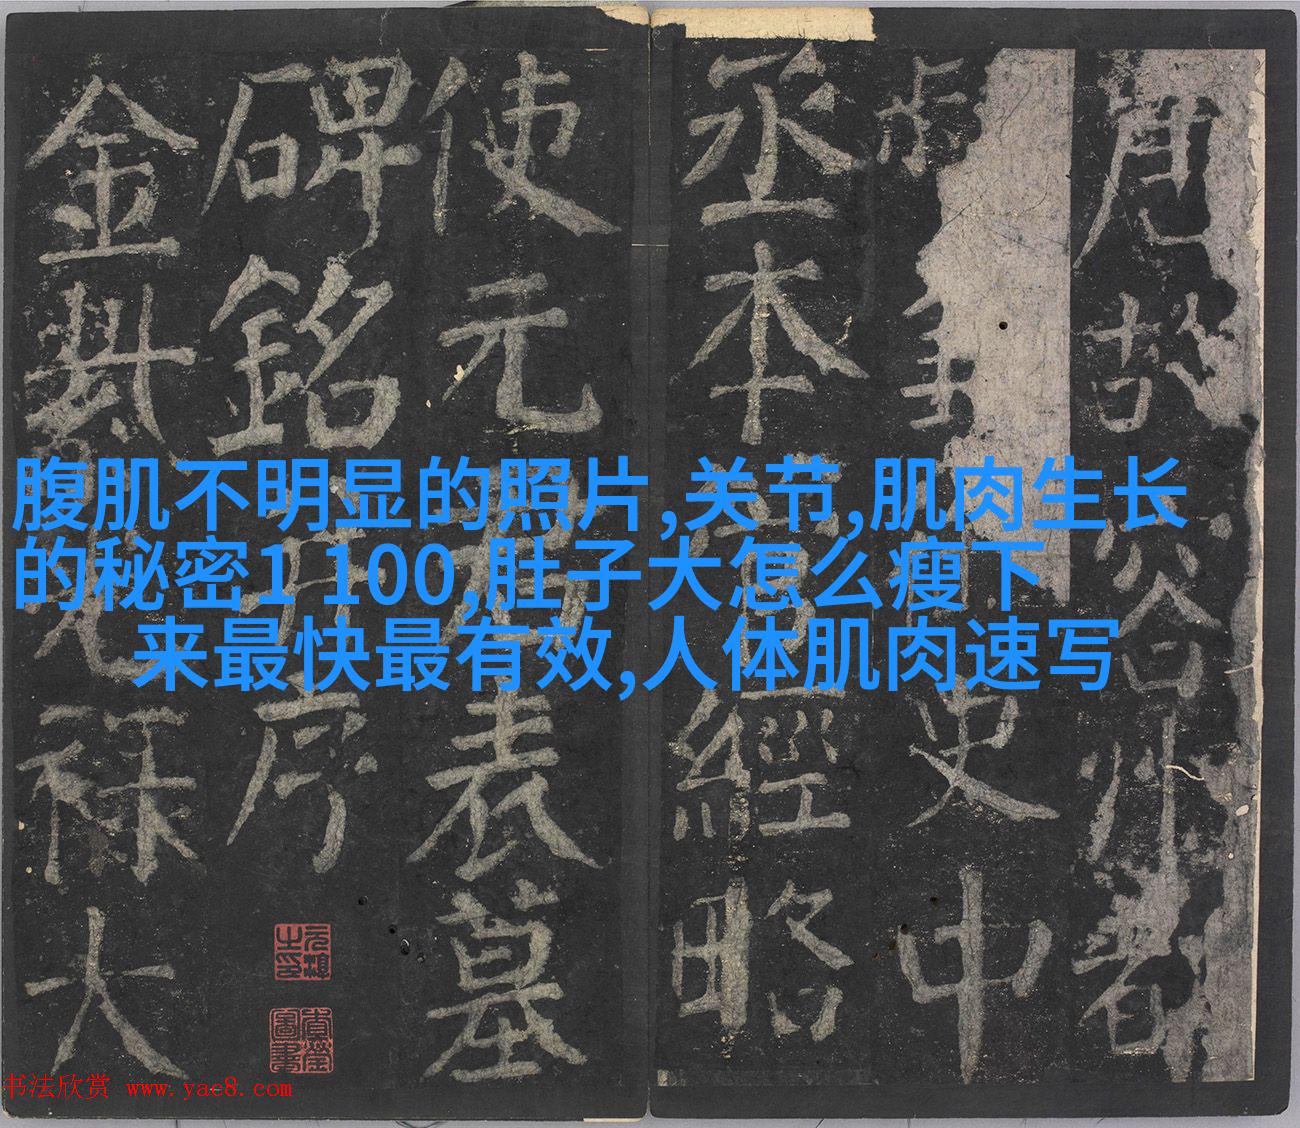 腹肌不明显的照片,关节,肌肉生长
的秘密1 100,肚子大怎么瘦下
来最快最有效,人体肌肉速写
唐故容州都
史中
丞本經略
使元君表墓
碑銘并序
金紫光祿大
书法欣赏 www.yac8.com